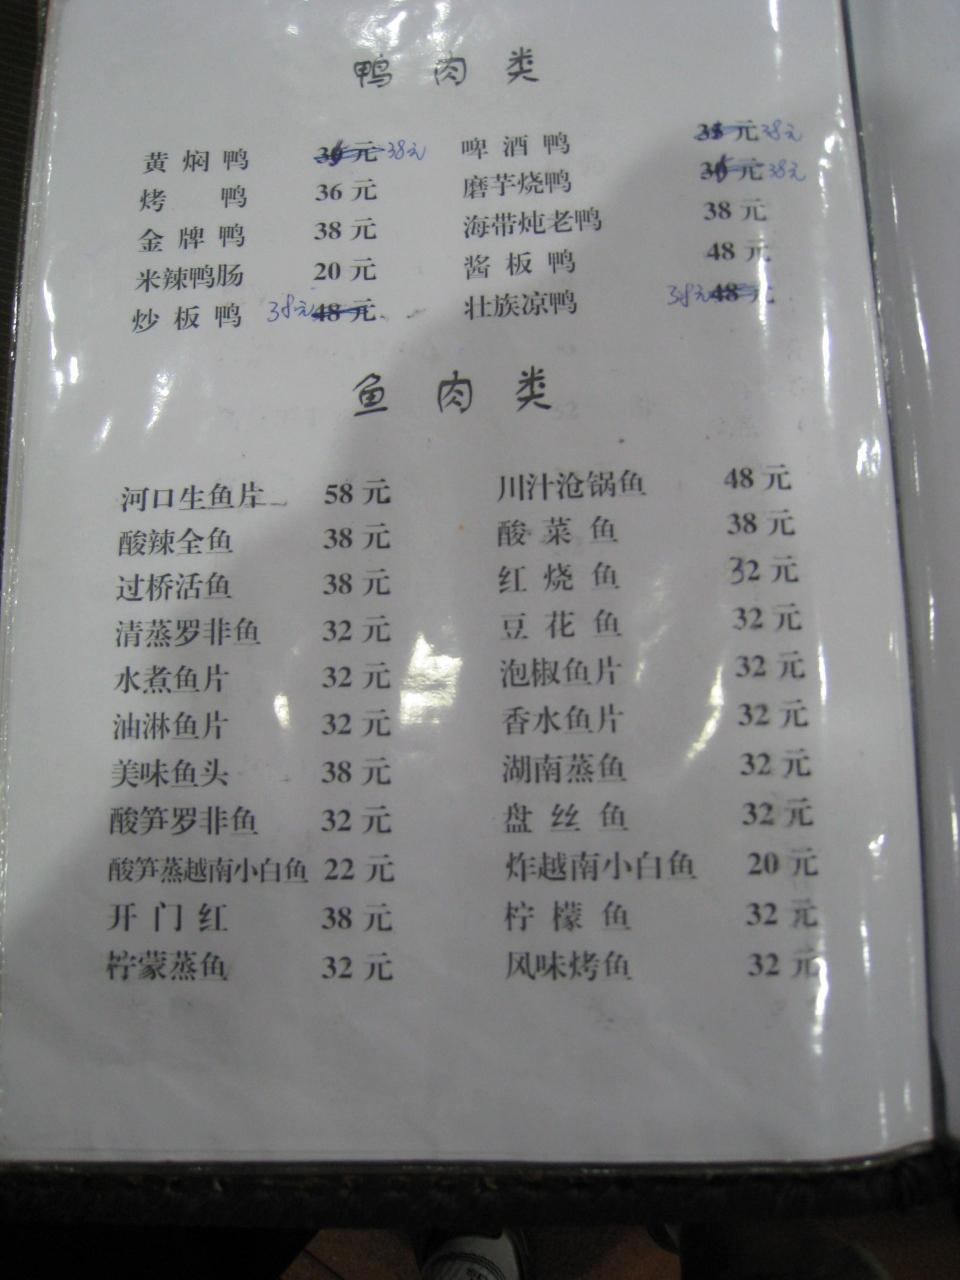 鸭肉类
黄焖鸭 元 38元 啤酒鸭 元 38元
烤鸭 36元 磨芋烧鸭 元 38元
金牌鸭 38元 海带炖老鸭 38元
米辣鸭肠 20元 酱板鸭 48元
炒板鸭 38元 48元 壮族凉鸭 38元 48元
鱼肉类
河口生鱼片 58元 川汁沧锅鱼 48元
酸辣全鱼 38元 酸菜鱼 38元
过桥活鱼 38元 红烧鱼 32元
清蒸罗非鱼 32元 豆花鱼 32元
水煮鱼片 32元 泡椒鱼片 32元
油淋鱼片 32元 香水鱼片 32元
美味鱼头 38元 湖南蒸鱼 32元
酸笋罗非鱼 32元 盘丝鱼 32元
酸笋蒸越南小白鱼 22元 炸越南小白鱼 20元
开门红 38元 柠檬鱼 32元
柠蒙蒸鱼 32元 风味烤鱼 32元